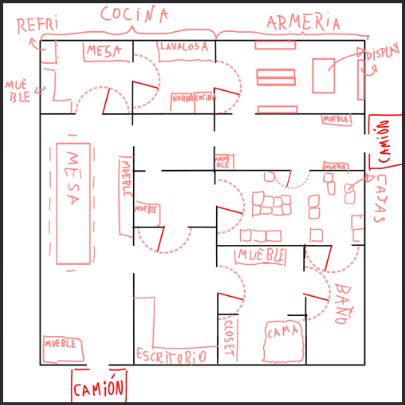 COCINA
ARMERIA
REFRI
MESA
LAVALOSA
DISPLAY
MUE
BLE
HORNO
COCINA
MUEBLE
CAMIÓN
MESA
MUEBLE
MUE
BLE
MUEBLE
CAJAS
MUEBLE
MUEBLE
BAÑO
MUEBLE
CLOSET
CAMA
ESCRITORIO
CAMIÓN